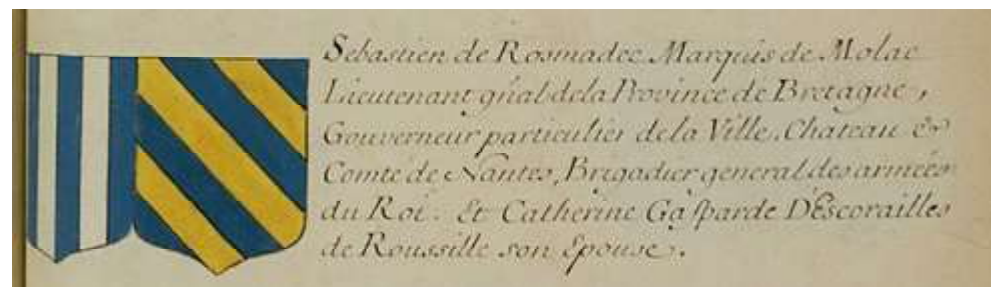 Sebastien de Rosmadec Marquis de Molac
Lieutenant gñal dela Province de Bretagne,
Gouverneur particulier dela Ville, Chateau &
Comté de Nantes, Brigadier general des armées
du Roi. Et Catherine Gasparde D'Escorailles
de Roussille son Epouse.